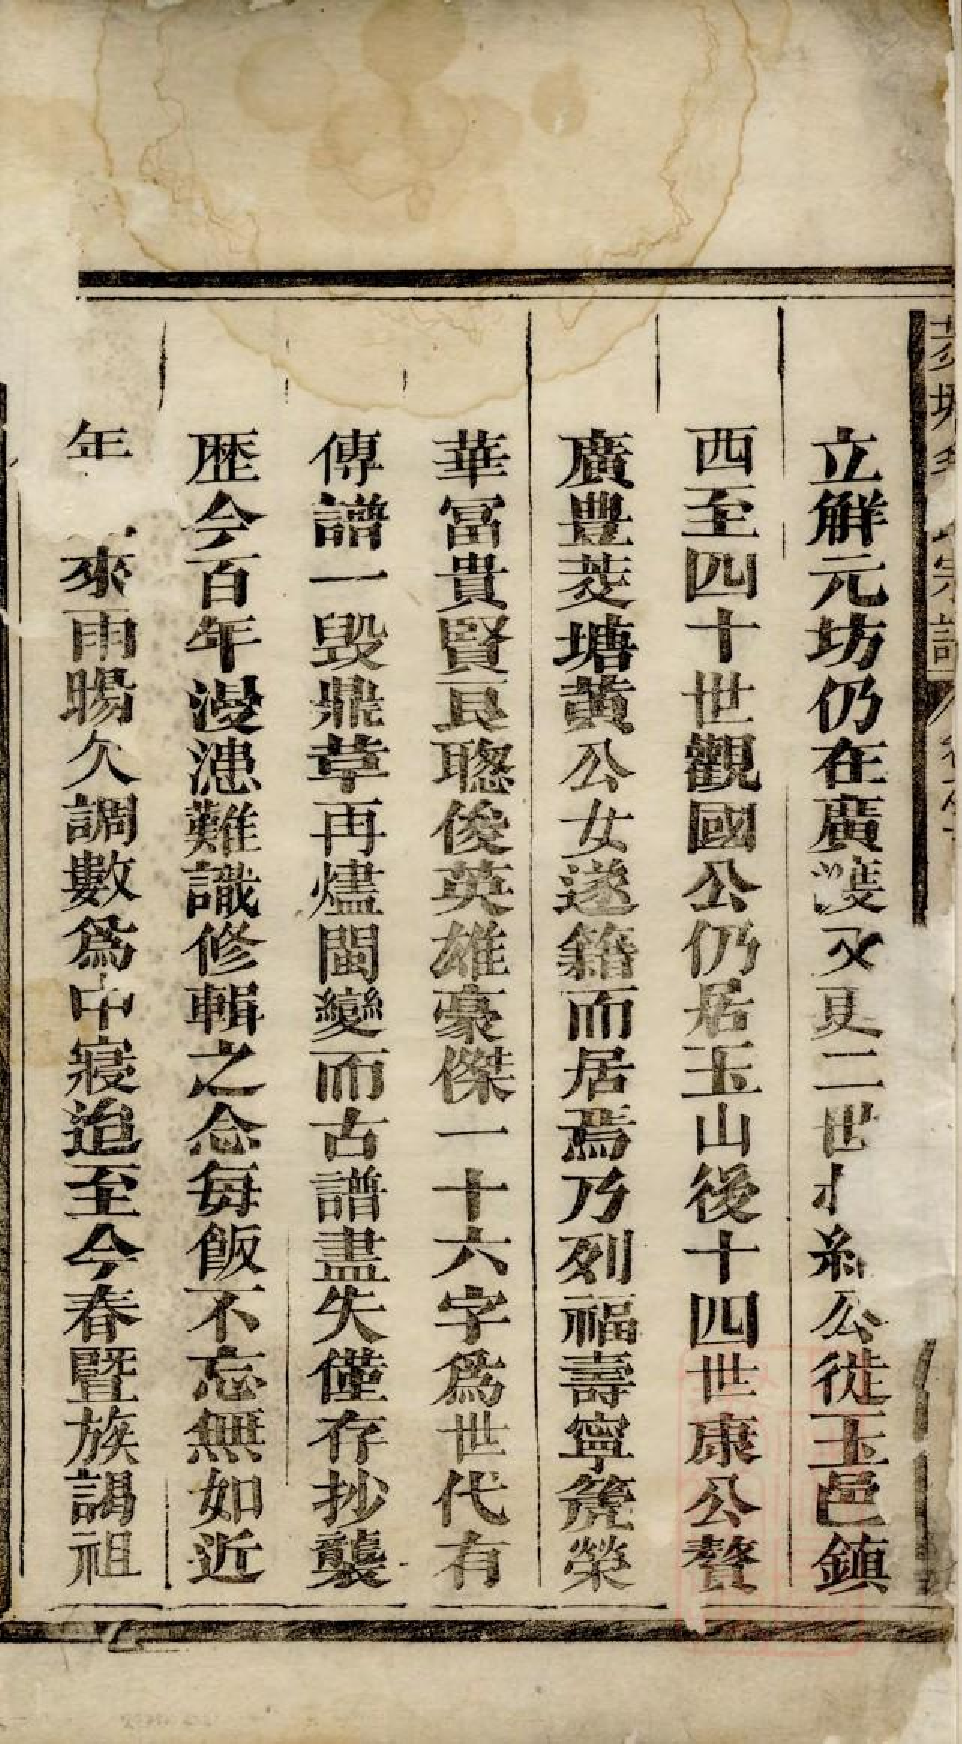 立解元坊仍在廣護又更二世 公徙玉邑鎮
西至四十世觀國公仍居玉山後十四世康公贅
廣豊茭塘黄公女遂籍而居焉乃列福壽寜 榮
華冨貴賢良聦俊英雄豪傑一十六字爲世代有
傳譜一毁鼎革再燼閩變而古譜盡失僅存抄襲
歴今百年漫漶難識修輯之念每飯不忘無如近
年 來雨暘欠調數爲中寢迨至今春暨族謁祖